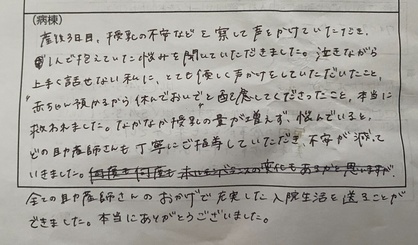 (病棟)
産後3日目、授乳の不安などを察して声をかけていただき、
1人で抱えていた悩みを聞いていただきました。泣きながら
上手く話せない私に、とても優しく声かけをしていただいたこと、
"赤ちゃん預かるから休んでおいで"と配慮してくださったこと、本当に
救われました。なかなか授乳の量が増えず、悩んでいると、
どの助産師さんも丁寧にご指導していただき、不安が減って
いきました。
全ての助産師さんのおかげで充実した入院生活を送ることが
できました。本当にありがとうございました。